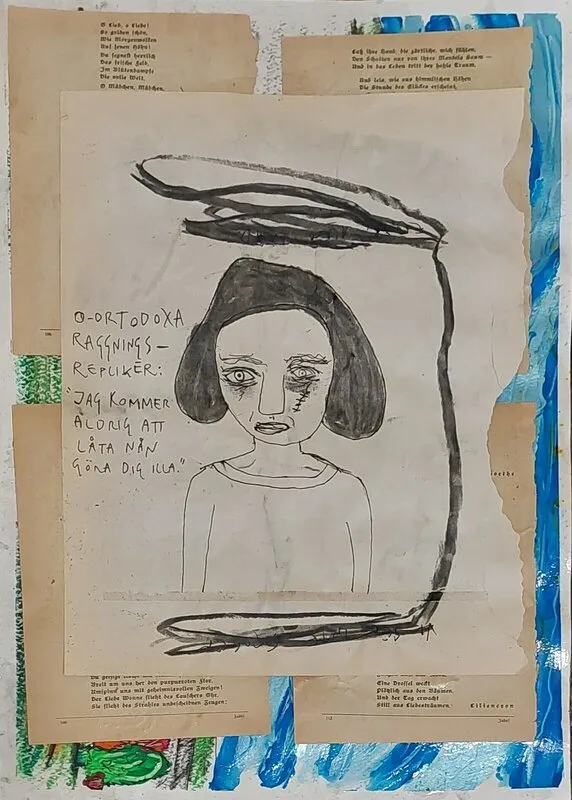 O Lieb, o Liebe!
So golden schön,
Wie Morgenwolken
Auf jenen Höhn!
Du segnest herrlich
Das frische Feld,
Im Blütendampfe
Die volle Welt.
O Mädchen, Mädchen,
Laß ihre Hand, die zärtliche, mich fühlen,
Den Schatten nur von ihres Mantels Saum —
Und in das Leben tritt der hohle Traum.
Und leis, wie aus himmlischen Höhen
Die Stunde des Glückes erscheint,
O-ORTODOXA
RAGGNINGS-
REPLIKER:
"JAG KOMMER
ALDRIG ATT
LÅTA NÅN
GÖRA DIG ILLA."
Goethe
Breit um uns her den purpurroten Flor.
Umspinn uns mit geheimnisvollen Zweigen!
Der Liebe Wonne flieht des Lauschers Ohr,
Sie flieht des Strahles unbescheidnen Zeugen:
Eine Drossel weckt
Plötzlich aus den Bäumen,
Und der Tag erwacht
Still aus Liebesträumen.
Liliencron